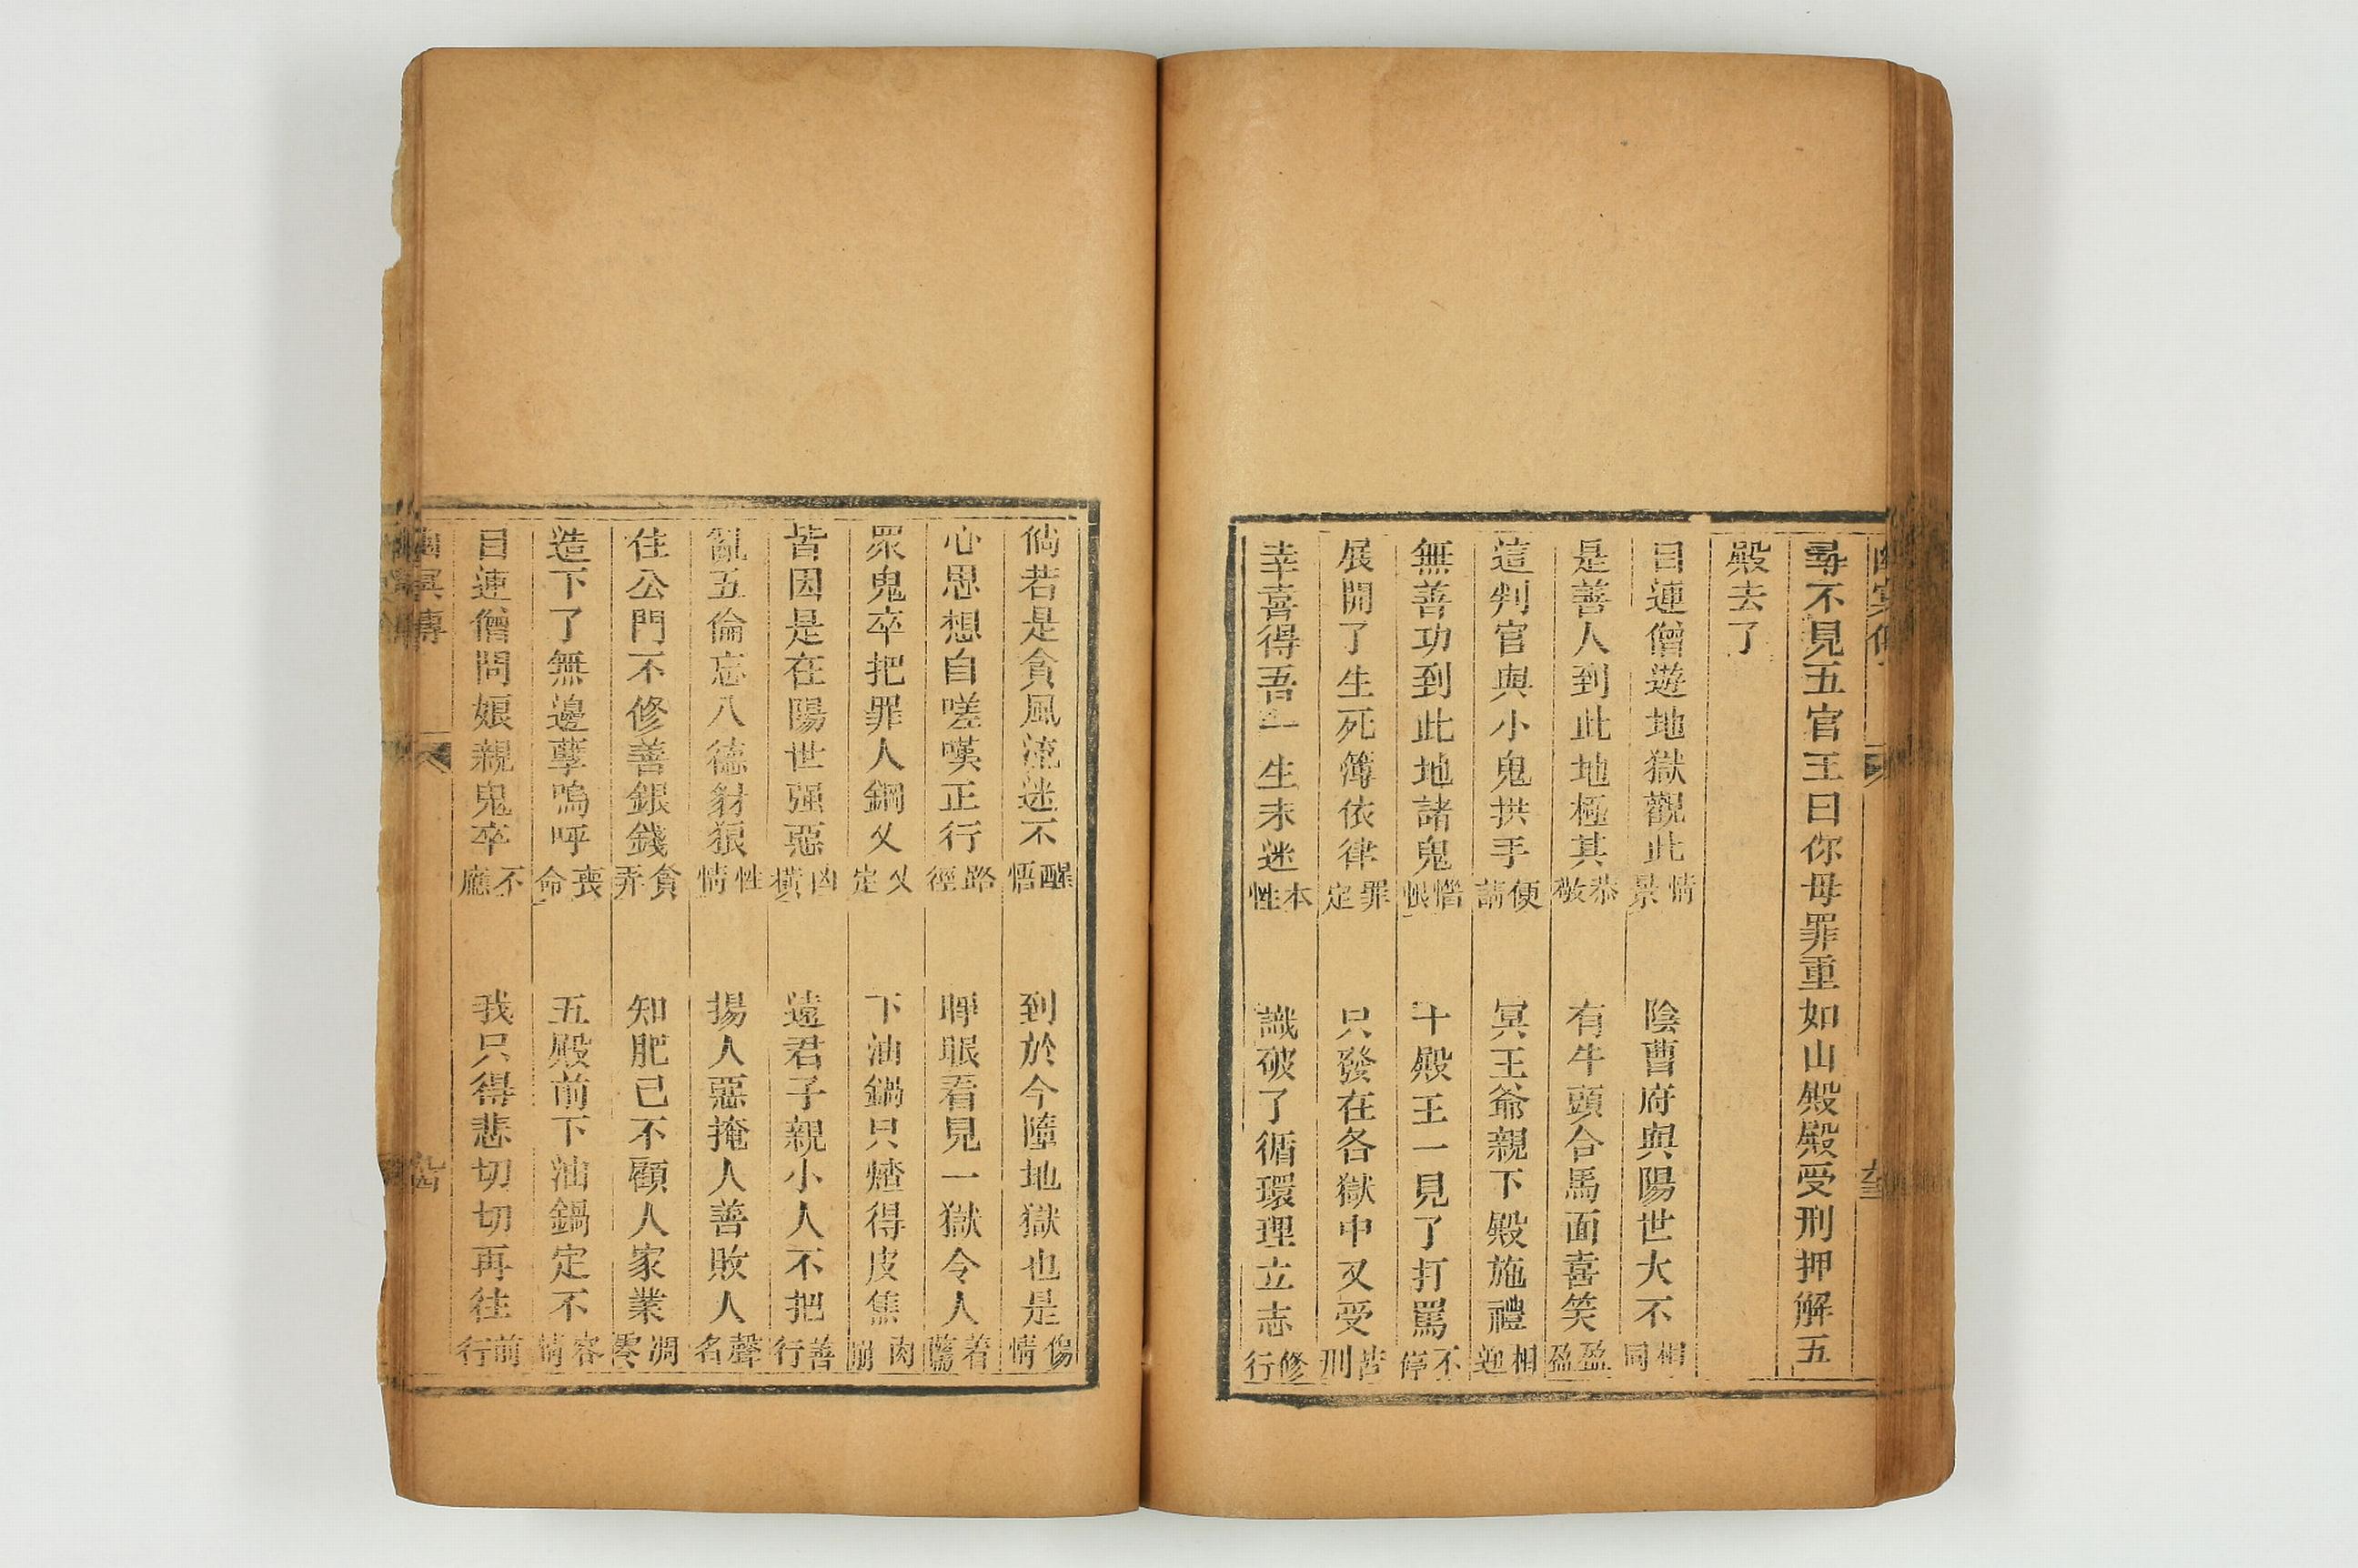 尋不見五官王曰你母罪重如山殿殿受刑押解五
殿去了
目連僧遊地獄觀此情景　陰曹府與陽世大不相同
是善人到此地極其恭敬　有牛頭合馬面喜笑盈盈
這判官與小鬼拱手便請　冥王爺親下殿施禮相迎
無善功到此地諸鬼惱恨　十殿王一見了打罵不停
展開了生死簿依律罪定　只發在各獄中又受苦刑
幸喜得吾一生未迷本性　識破了循環理立志修行
倘若是貪風流迷不醒悟　到於今墮地獄也是傷情
心思想自嗟嘆正行路徑　睜眼看見一獄令人着驚
眾鬼卒把罪人鋼叉叉定　下油鍋只煙得皮焦肉崩
皆因是在陽世强惡凶橫　遠君子親小人不把善行
亂五倫忘八德豺狼性情　揚人惡掩人善敗人聲名
住公門不修善銀錢貪弄　知肥己不顧人家業凋零
造下了無邊孽嗚呼喪命　五殿前下油鍋定不容情
目連僧問娘親鬼卒不應　我只得悲切切再往前行
幽冥傳